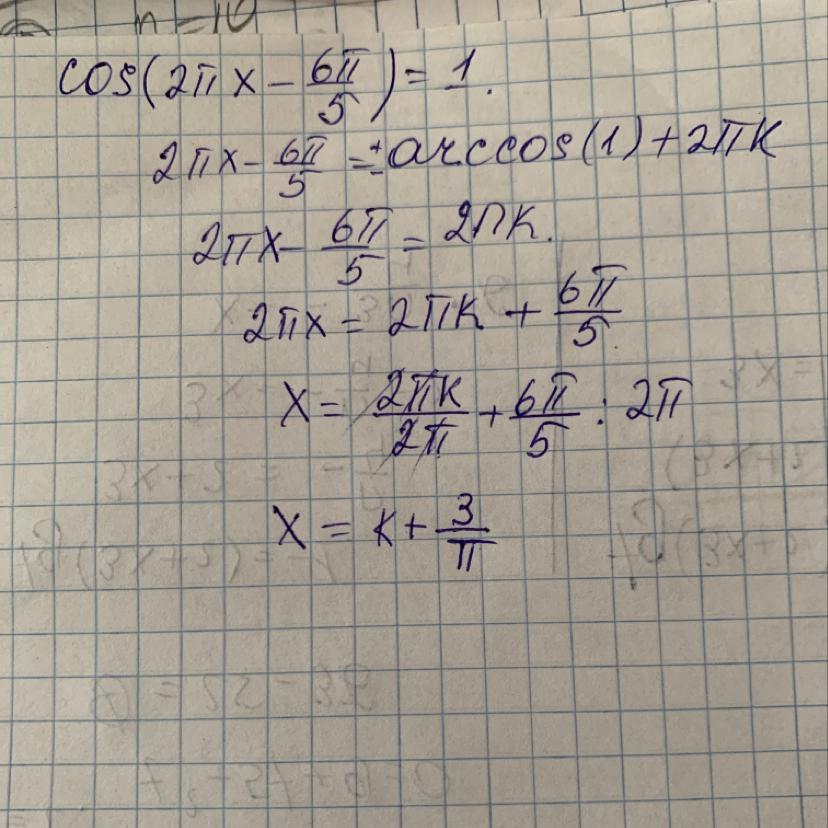 n = 10
cos(2πx - 6π/5) = 1.
2πx - 6π/5 = ± arccos(1) + 2πk
2πx - 6π/5 = 2πk.
2πx = 2πk + 6π/5
x = 2πk/2π + 6π/5 : 2π
x = k + 3/π